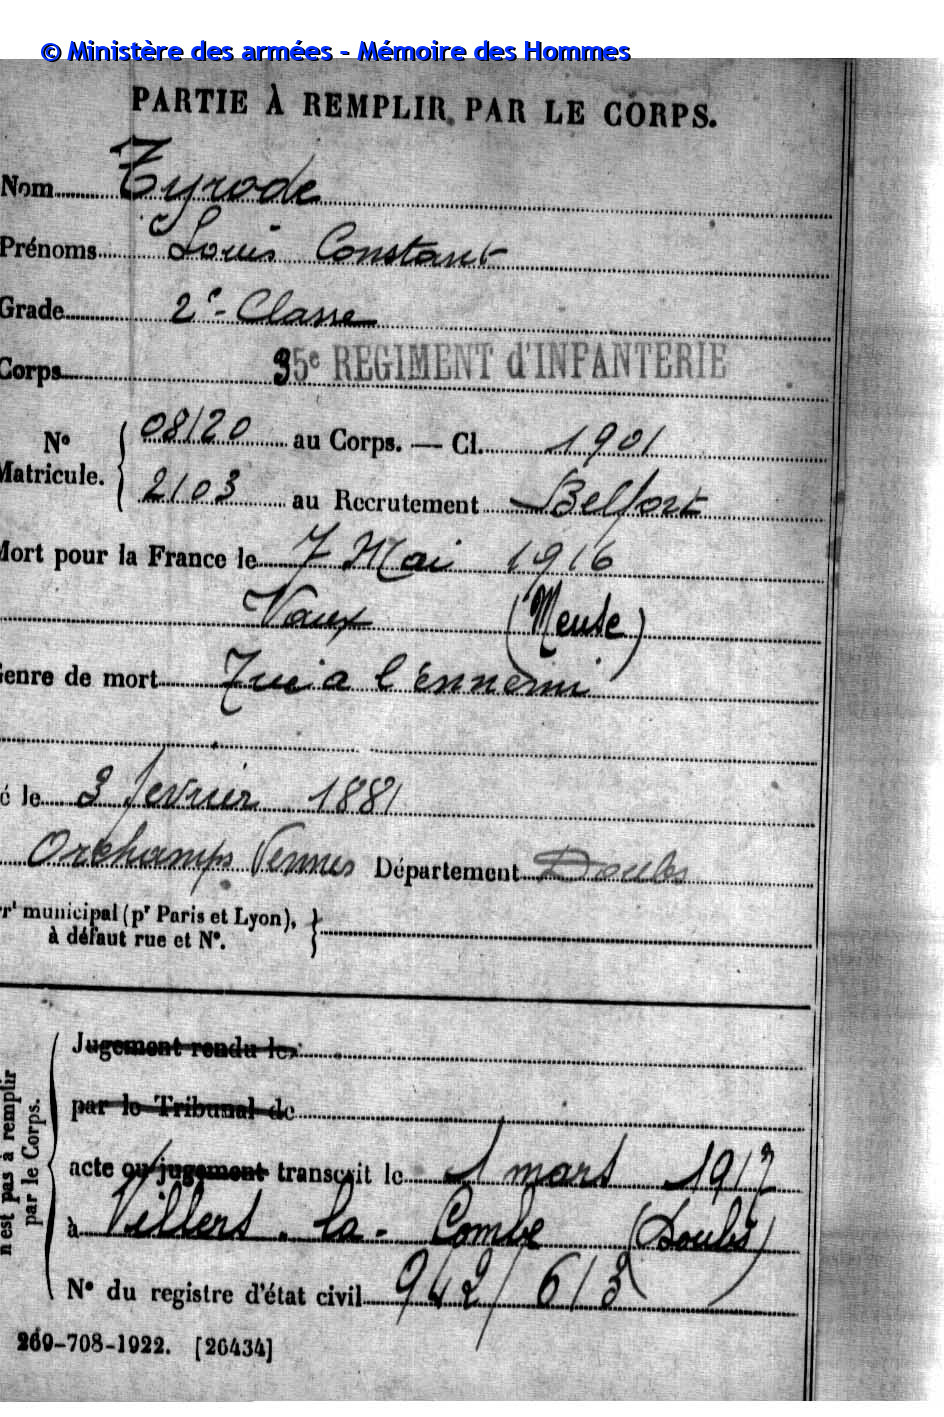 © Ministère des armées - Mémoire des Hommes
PARTIE À REMPLIR PAR LE CORPS.
Nom Tyrode
Prénoms Louis Constant
Grade 2e Classe
Corps 35e REGIMENT d'INFANTERIE
No 08120 au Corps. — Cl. 1901
Matricule. 2103 au Recrutement Belfort
Mort pour la France le 7 Mai 1916
Vaux (Meuse)
Genre de mort Tué a l'ennemi
é le 3 février 1881
Orchamps Vennes Département Doubs
rrt municipal (pr Paris et Lyon),
à défaut rue et No.
Jugement rendu le
par le Tribunal de
acte ou jugement transcrit le 1 mars 1917
à Villers-la-Combe (Doubs)
No du registre d'état civil 942/613
n'est pas à remplir
par le Corps.
269-708-1922. [26434]